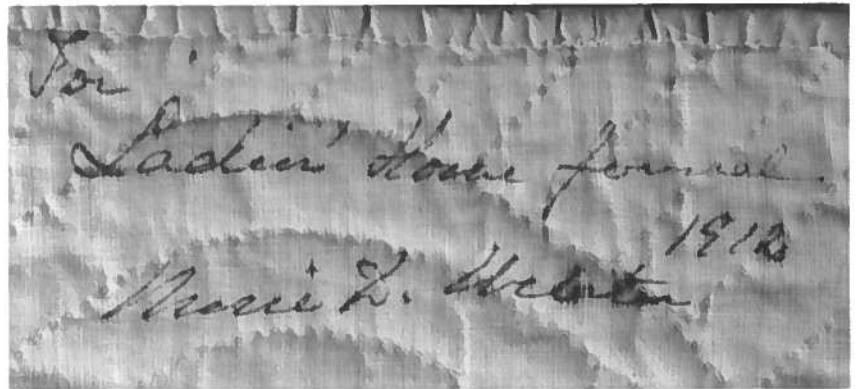 For
Ladies' Home Journal.
1912
Marie D. Webster